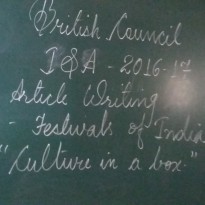 British Council
ISA - 2016-17
Article Writing
- Festivals of India
"Culture in a box."